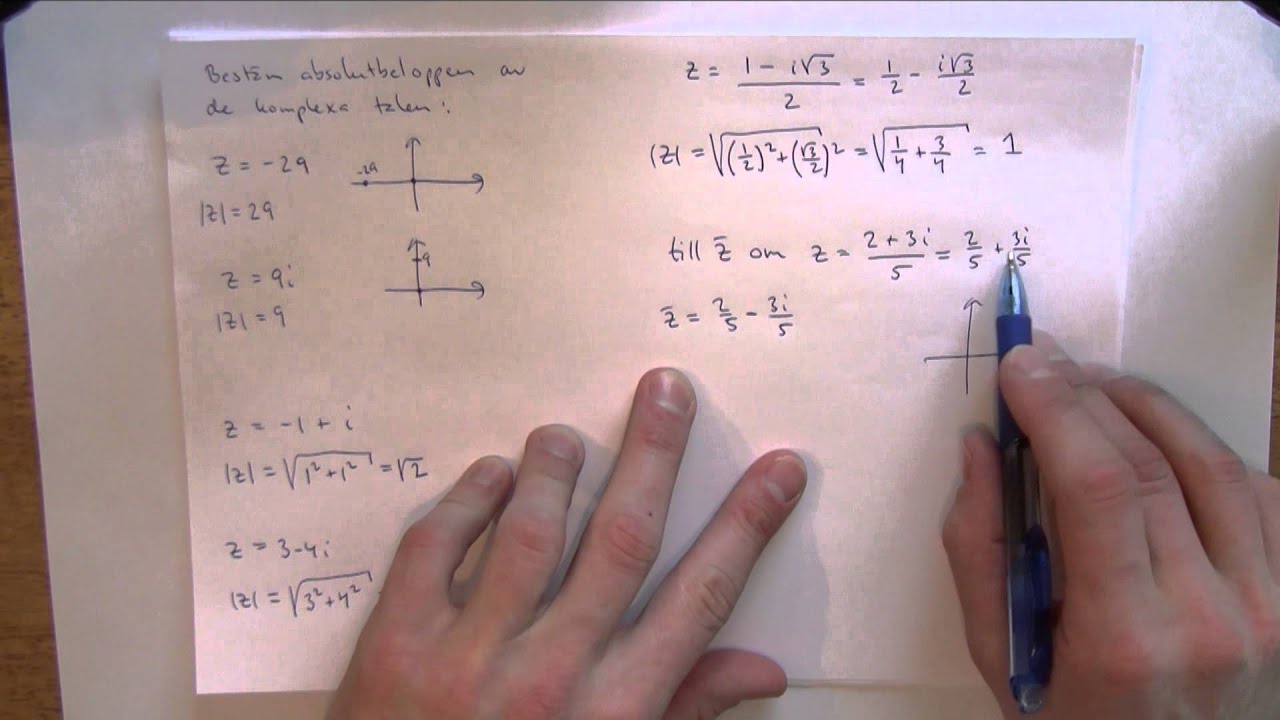 Bestäm absolutbeloppen av
de komplexa talen:
z = -29
-29
|z| = 29
z = 9i
9
|z| = 9
z = -1 + i
|z| = √(1² + 1²) = √2
z = 3-4i
|z| = √(3² + 4²)
z = (1 - i√3)/2 = 1/2 - i√3/2
|z| = √((1/2)² + (√3/2)²) = √(1/4 + 3/4) = 1
till z̄ om z = (2 + 3i)/5 = 2/5 + 3i/5
z̄ = 2/5 - 3i/5